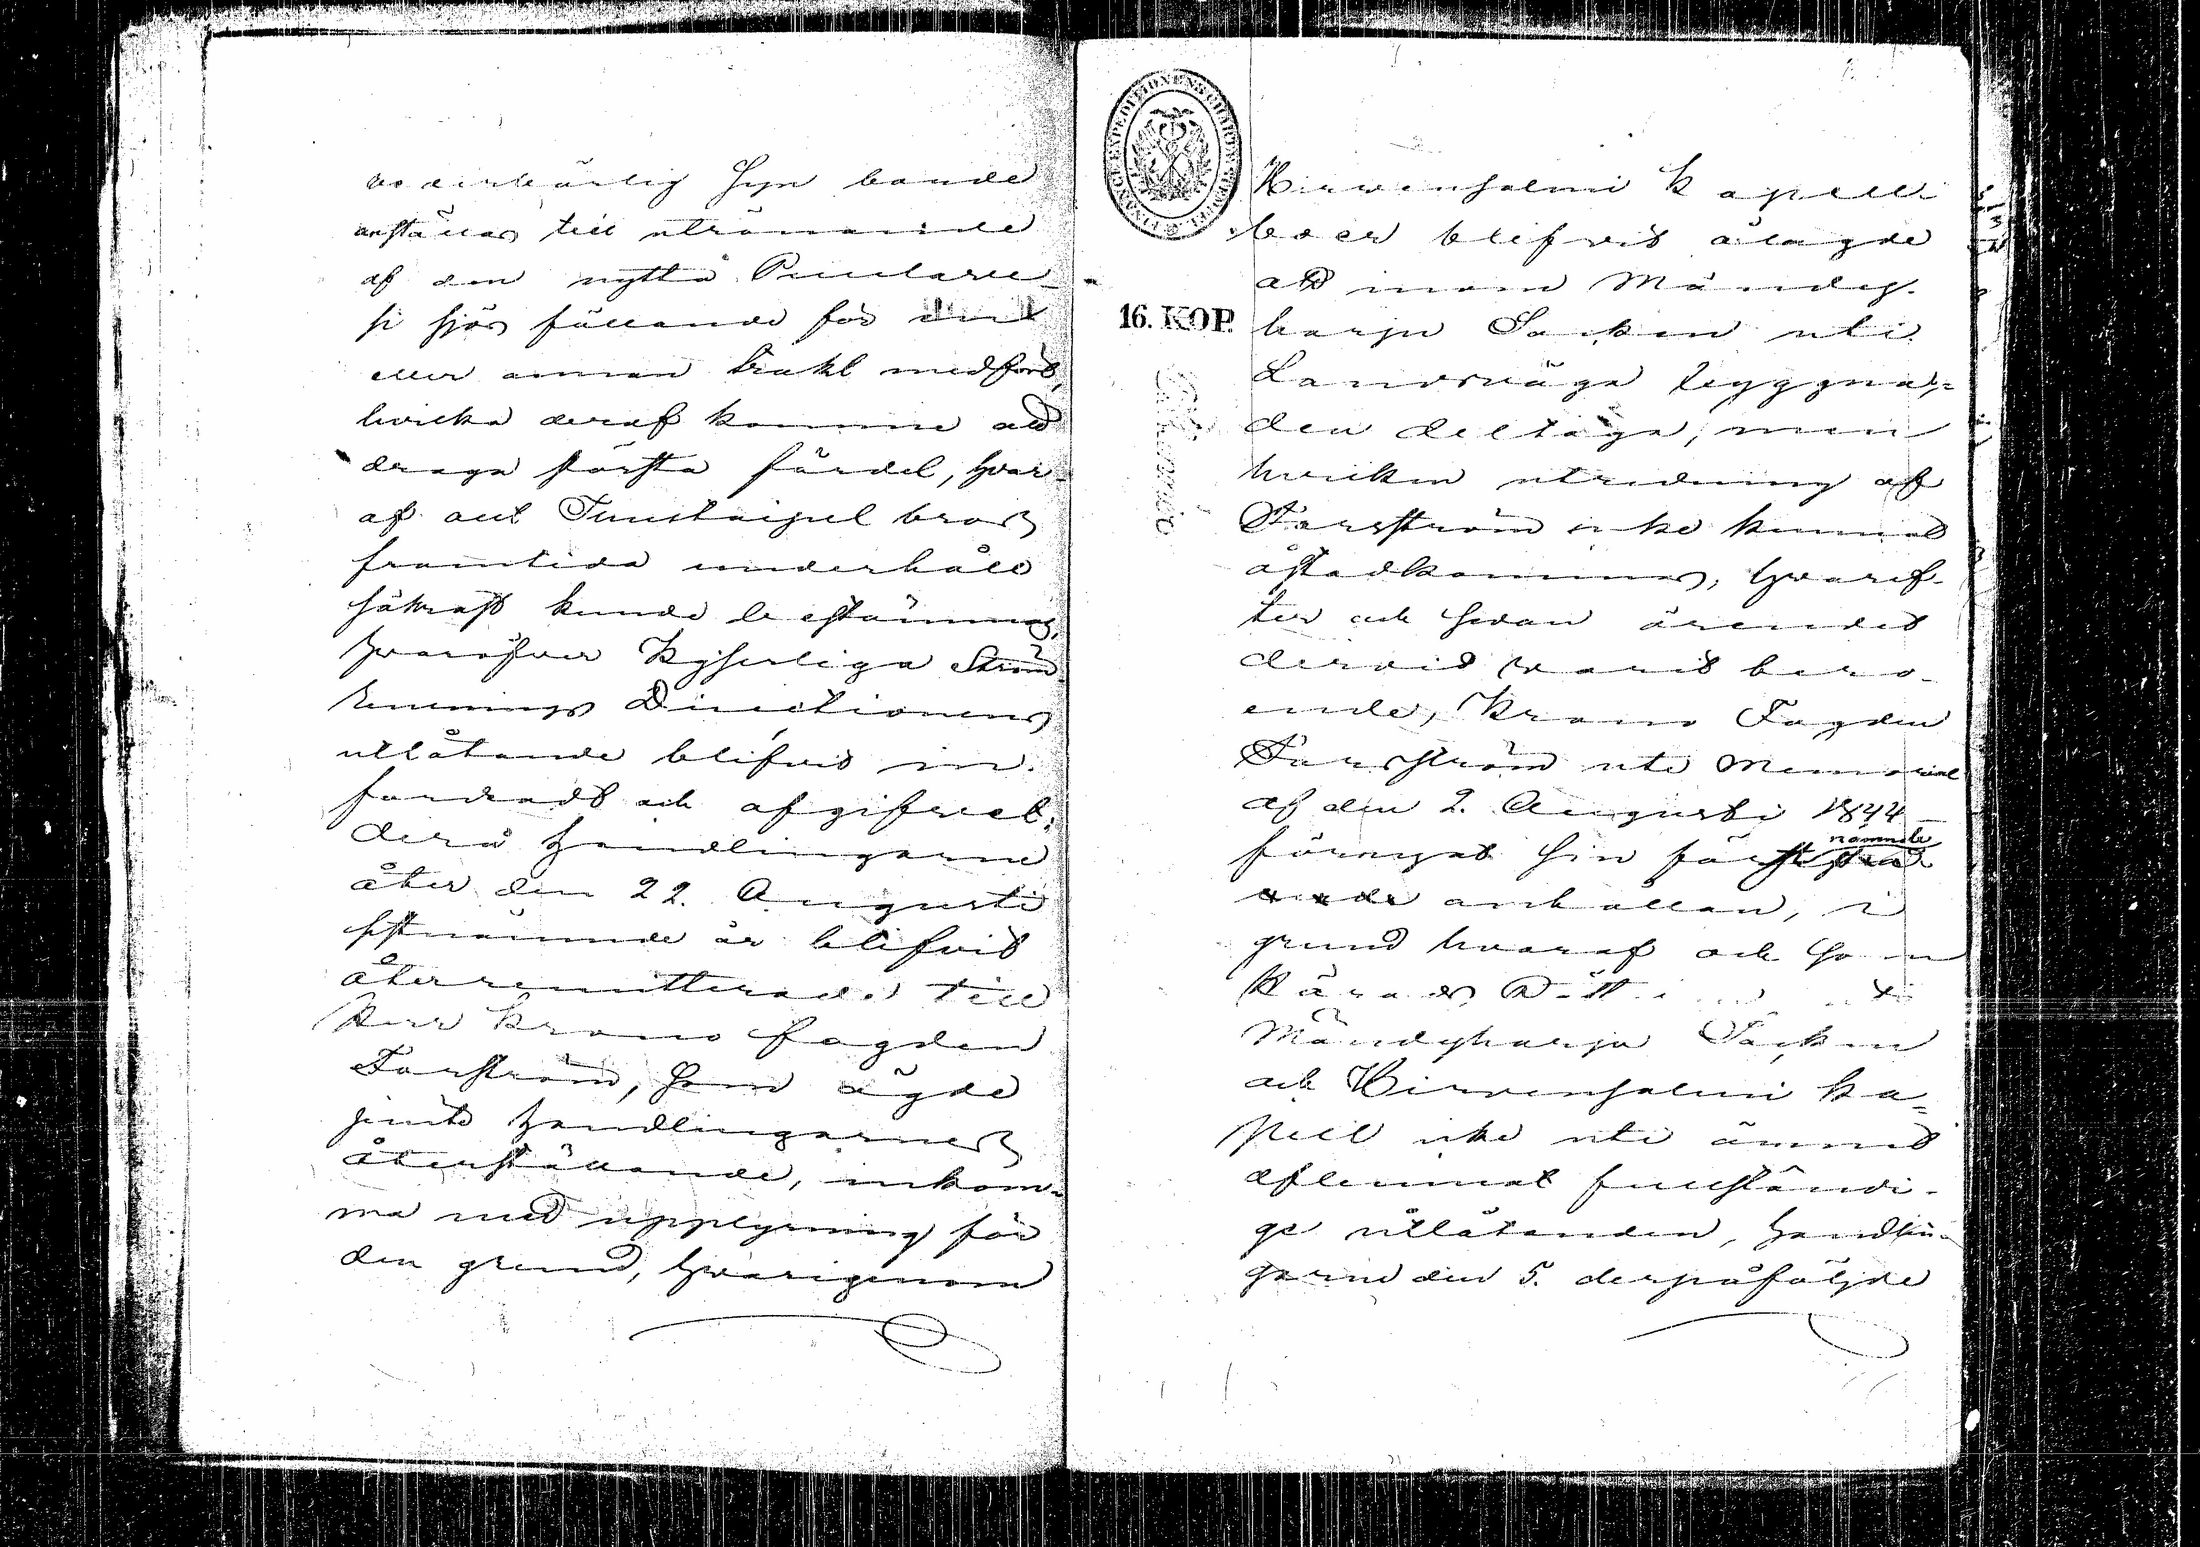 vederbörlig syn borde
anställas till utrönande
af den nytta Puularve-
si sjös fällande för den
eller annan trakt medfört,
hvilka deraf komme att
draga största fördel, hvar-
af ock Tuustaipal bros
framtida underhåll
säkrast kunde bestämmas,
hvaröfver Kejserliga Ström
rensnings Directionens
utlåtande blifvit in-
fordradt och afgifvet;
derå handlingarne
åter den 22. Augusti
sistnämnde år blifvit
återremitterade till
Herr Krono fogden
Forsström, som ägde
jemte handlingarnes
återställande, inkom-
ma med upplysning för
den grund, hvarigenom
FINANCE EXPEDITIONENS CHARTÆ STEMPEL
16. KOP.
Hirvensalmi Kapell
boer blifvit ålagde
att inom Mändy-
harju Socken uti
Landsväga byggna-
den deltaga, men
hvilken utredning af
Forsström icke kunnat
åstadkommas, hvaref-
ter och sedan ärendet
dervid varit bero-
ende, Krono Fogden
Forsström uti Memorial
af den 2. Augusti 1844
förnyat sin först nämnde
anhållan, i
grund hvaraf och som
Härads Rätt
Mändyharju Socken
och Hirvensalmi Ka-
pell icke uti ämnet
aflemnat fullständi-
ge utlåtanden, handlin-
garne den 5. derpåföljde